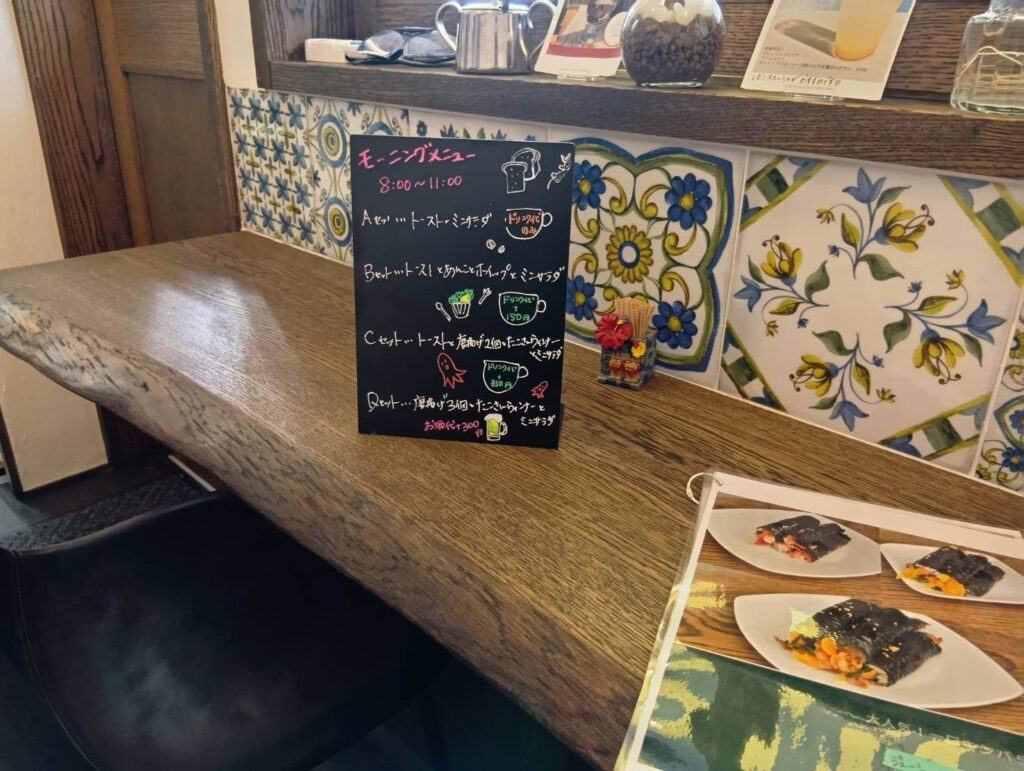 モーニングメニュー
8:00〜11:00
Aセット…トースト・ミニサラダ
ドリンク代
のみ
Bセット…トーストとあんことホイップとミニサラダ
ドリンク代
+
150円
Cセット…トーストと唐揚げ2個・たこさんウィンナー
+ミニサラダ
ドリンク代
+
350円
Dセット…唐揚げ3個・たこさんウィンナーと
ミニサラダ
お酒代+300
円